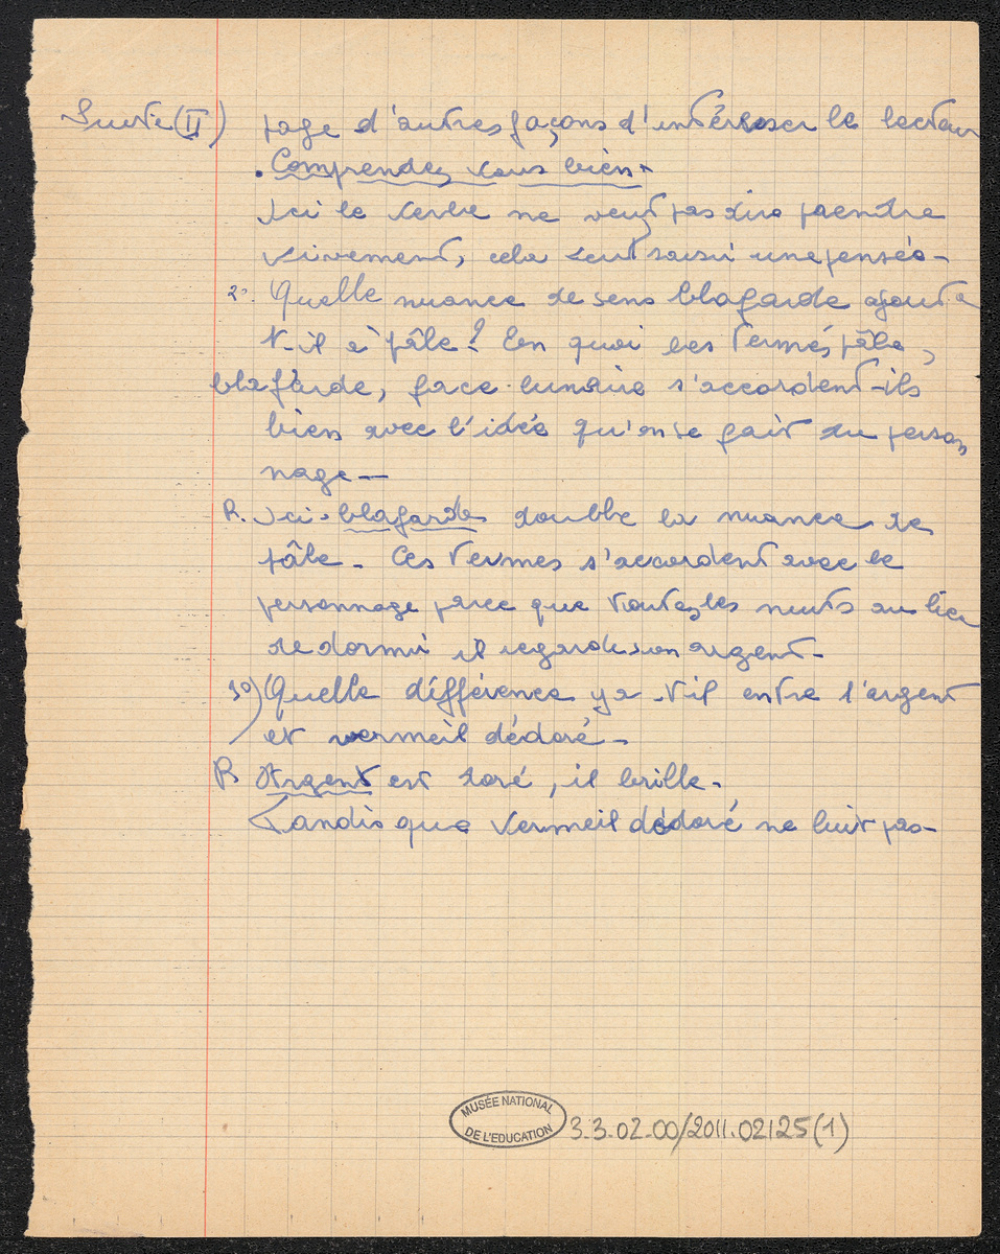 Suite (II) page d'autres façons d'intéresser le lecteur
. Comprendez vous bien -
Ici le verbe ne veut pas dire peindre
vivement, cela veut saisir une pensée -
2°. Quelle nuance de sens blafarde ajoute
t-il à pâle? En quoi les termes, pâle,
blafarde, face lunaire s'accordent-ils
bien avec l'idée qu'on se fait du person
nage -
R. Ici - blafarde double la nuance de
pâle - Ces termes s'accordent avec le
personnage parce que toutes les nuits au lieu
de dormir il regarde son argent -
3°) Quelle différence y a -t'il entre l'argent
et vermeil dédoré -
R Argent est doré, il brille -
Tandis que vermeil dédoré ne luit pas -
MUSÉE NATIONAL
DE L'EDUCATION
3.3.02.00/2011.02125(1)